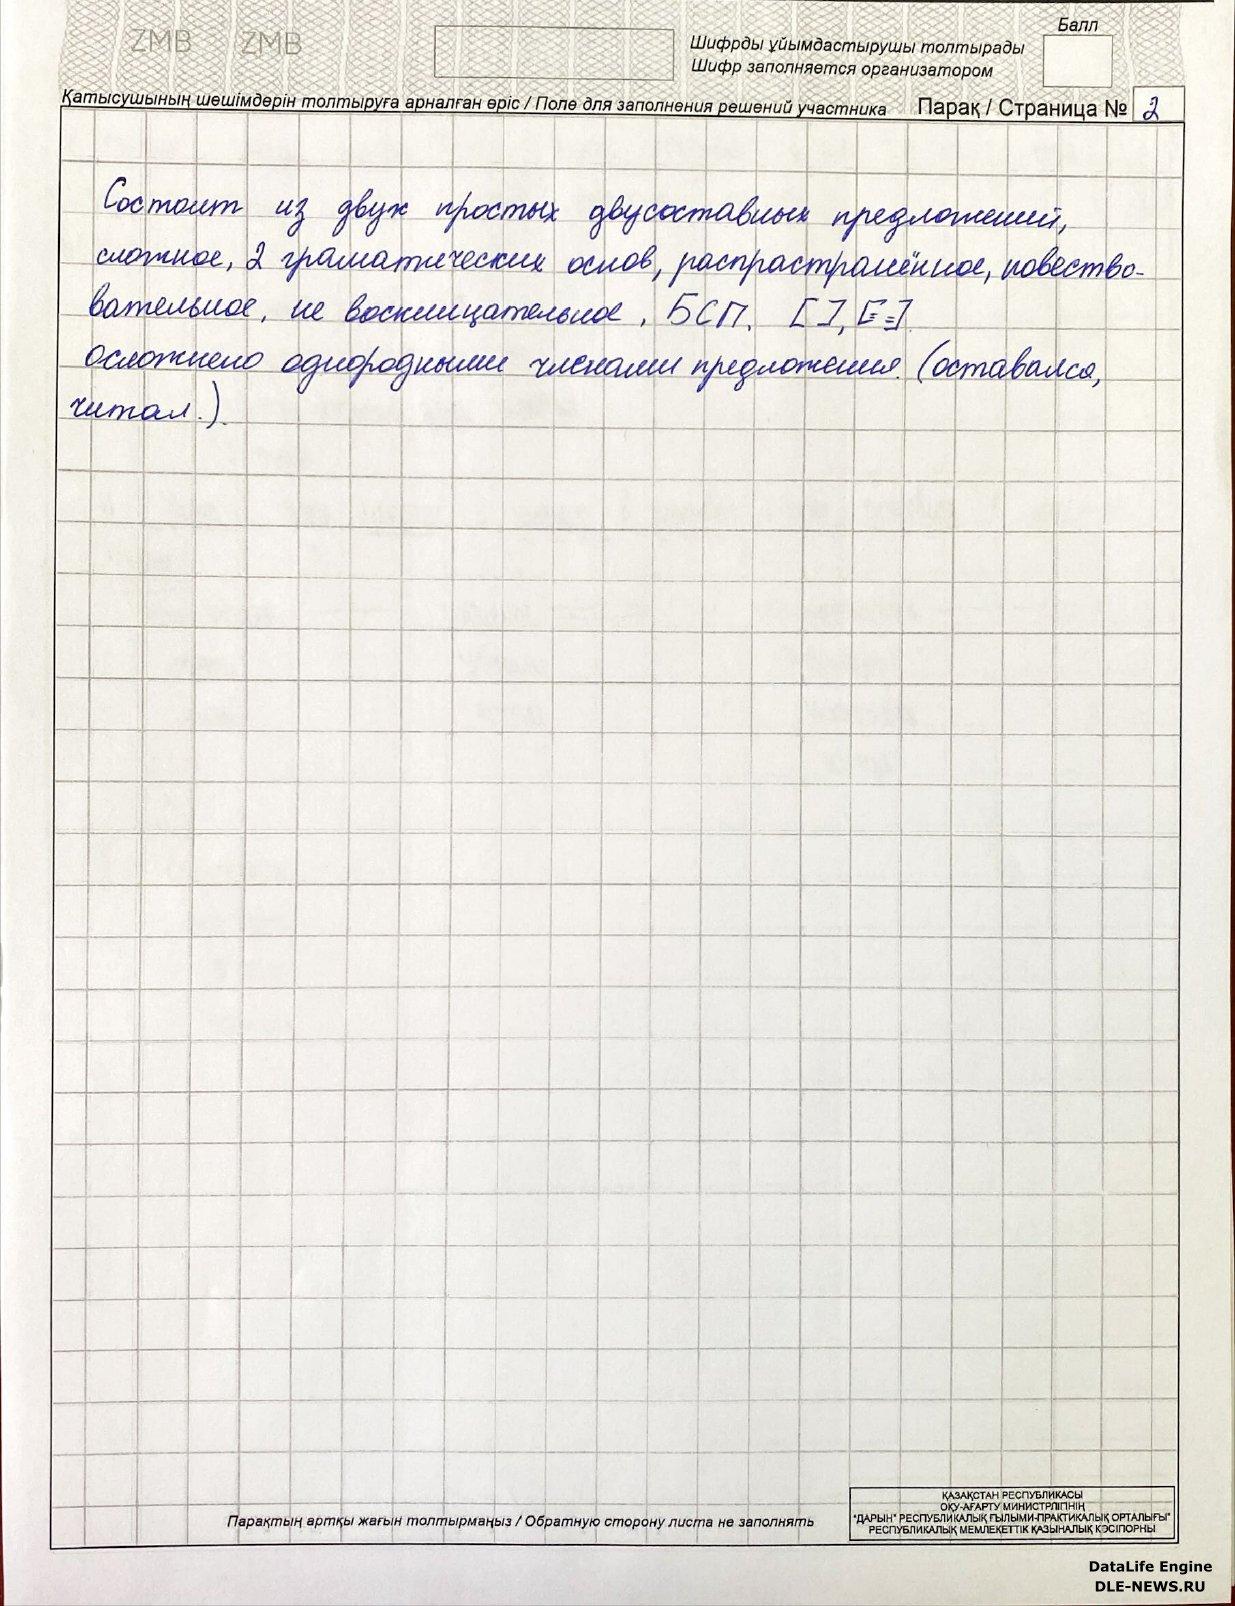 ZMB ZMB
Балл
Шифрды ұйымдастырушы толтырады
Шифр заполняется организатором
Қатысушының шешімдерін толтыруға арналған өріс / Поле для заполнения решений участника
Парақ / Страница № 2
Состоит из двух простых двусоставных предложений,
сложное, 2 граматических основ, распрастранённое, повество-
вательное, не восклицательное, БСП. [ ], [= =].
осложнено однородными членами предложения. (оставался,
читал.).
Парақтың артқы жағын толтырмаңыз / Обратную сторону листа не заполнять
ҚАЗАҚСТАН РЕСПУБЛИКАСЫ
ОҚУ-АҒАРТУ МИНИСТРЛІГІНІҢ
"ДАРЫН" РЕСПУБЛИКАЛЫҚ ҒЫЛЫМИ-ПРАКТИКАЛЫҚ ОРТАЛЫҒЫ"
РЕСПУБЛИКАЛЫҚ МЕМЛЕКЕТТІК ҚАЗЫНАЛЫҚ КӘСІПОРНЫ
DataLife Engine
DLE-NEWS.RU